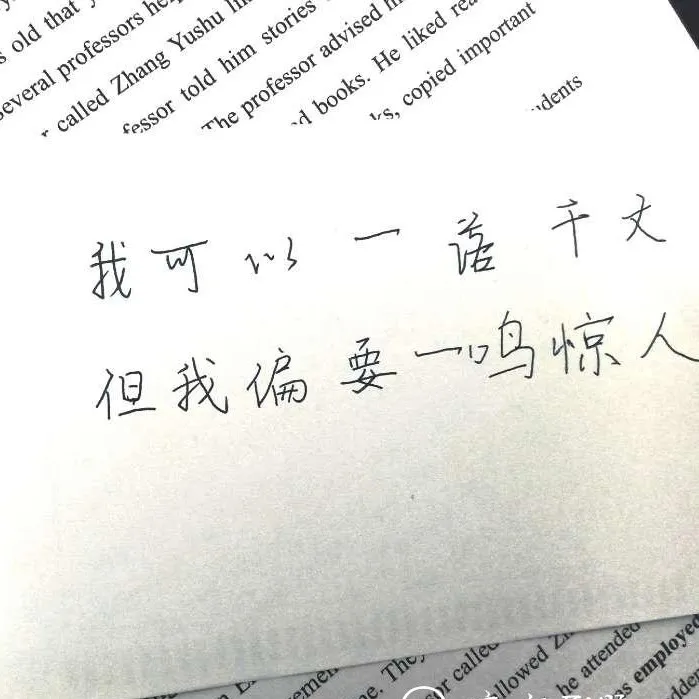 s old that
Several professors he
r called Zhang Yushu
fessor told him stories
The professor advised
d books. He liked rea
ks, copied important
udents
我可以一落千丈
但我偏要一鸣惊人
e. They
or called
llowed
he attended
s employed